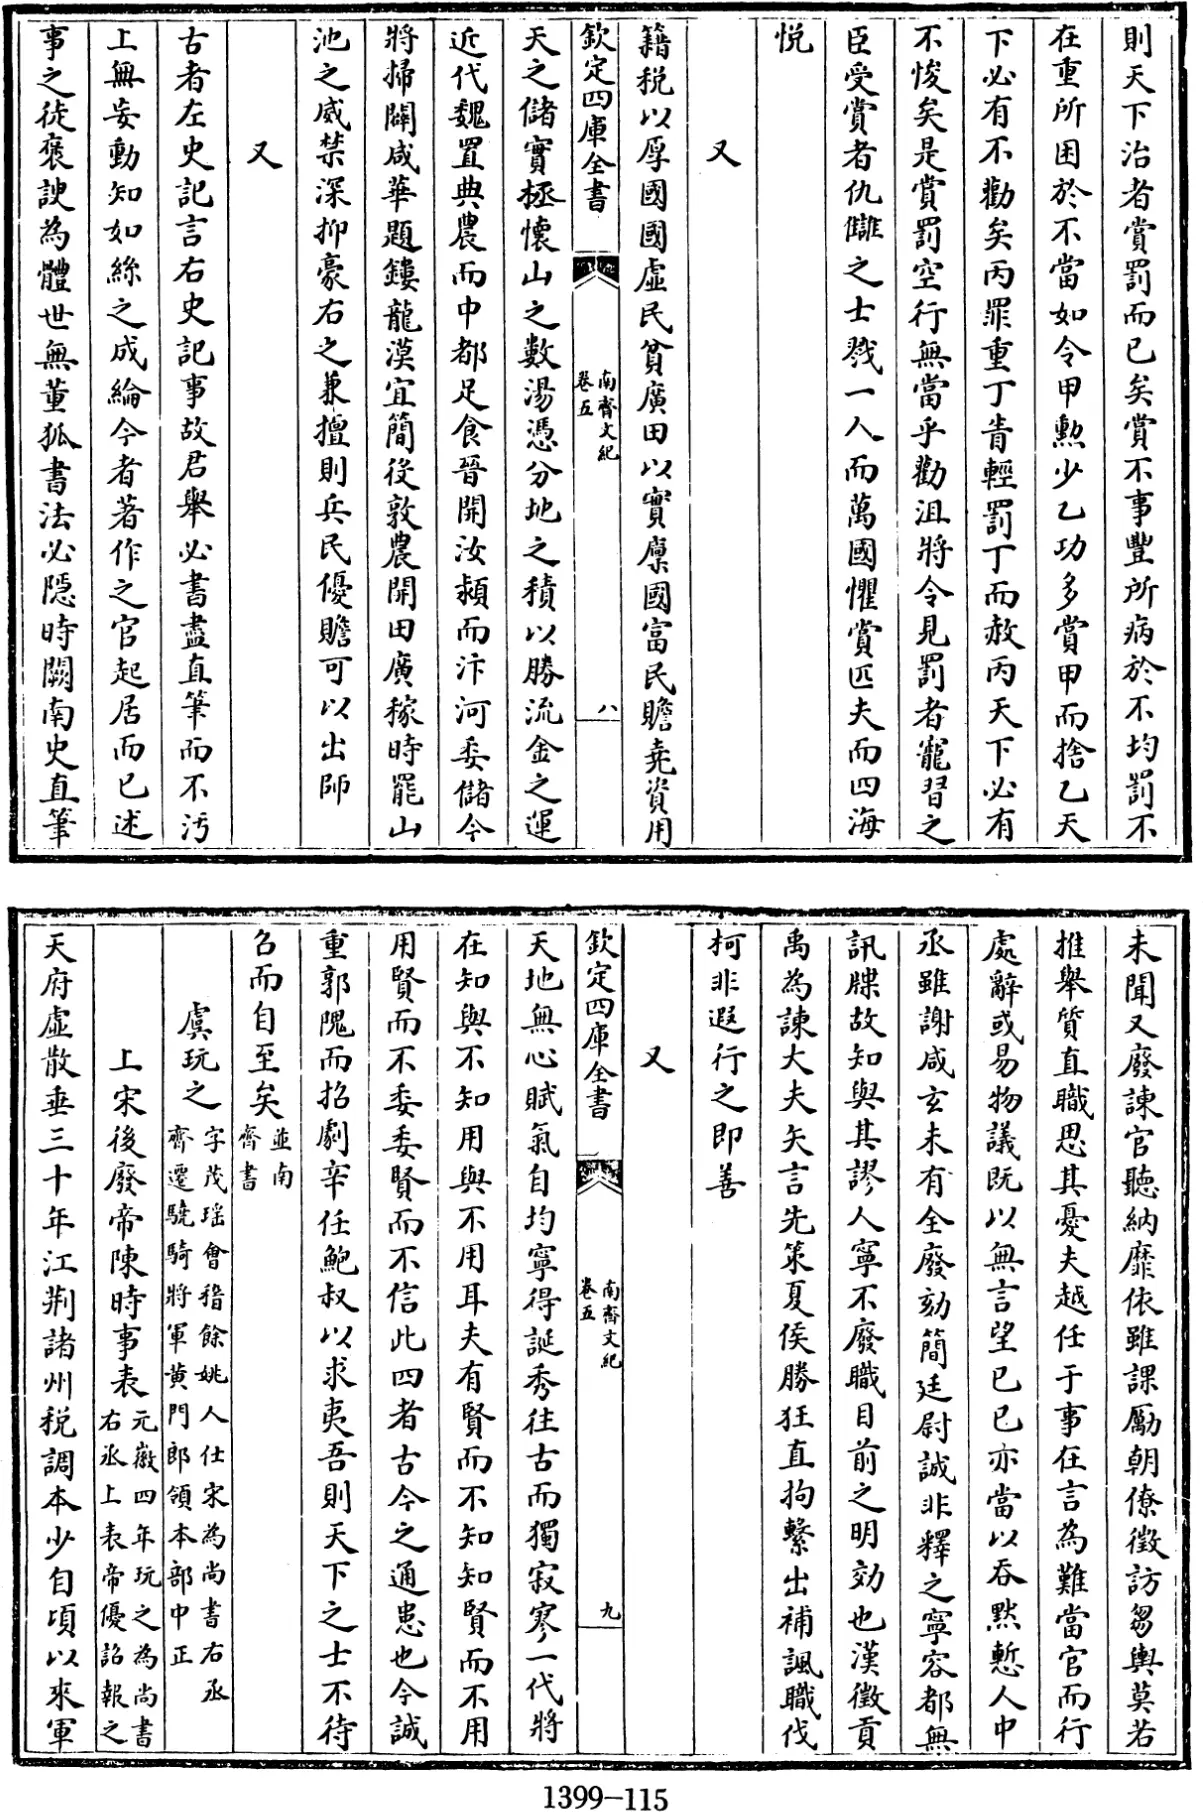 則天下治者賞罰而已矣賞不事豐所病於不均罰不
在重所困於不當如令甲勲少乙功多賞甲而捨乙天
下必有不勸矣丙罪重丁眚輕罰丁而赦丙天下必有
不悛矣是賞罰空行無當乎勸沮將令見罰者寵習之
臣受賞者仇讎之士戮一人而萬國懼賞匹夫而四海
悦
又
籍税以厚國國虛民貧廣田以實廩國富民贍堯資用
欽定四庫全書
南齊文紀
卷五
八
天之儲實拯懷山之數湯憑分地之積以勝流金之運
近代魏置典農而中都足食晉開汝潁而汴河委儲今
將掃闢咸華題鏤龍漠宜簡役敦農開田廣稼時罷山
池之威禁深抑豪右之兼擅則兵民優贍可以出師
又
古者左史記言右史記事故君舉必書盡直筆而不污
上無妄動知如絲之成綸今者著作之官起居而已述
事之徒褒諛為體世無董狐書法必隱時闕南史直筆
未聞又廢諫官聽納靡依雖課勵朝僚徵訪芻輿莫若
推舉質直職思其憂夫越任于事在言為難當官而行
處辭或易物議既以無言望己己亦當以吞黙慙人中
丞雖謝咸玄未有全廢劾簡廷尉誠非釋之寧容都無
訊牒故知與其謬人寧不廢職目前之明効也漢徵貢
禹為諫大夫矢言先策夏侯勝狂直拘繫出補諷職伐
柯非遐行之即善
又
欽定四庫全書
南齊文紀
卷五
九
天地無心賦氣自均寧得誕秀往古而獨寂寥一代將
在知與不知用與不用耳夫有賢而不知知賢而不用
用賢而不委委賢而不信此四者古今之通患也今誠
重郭隗而招劇辛任鮑叔以求夷吾則天下之士不待
召而自至矣並南
齊書
虞玩之字茂瑶會稽餘姚人仕宋為尚書右丞
齊遷驍騎將軍黄門郎領本部中正
上宋後廢帝陳時事表元徽四年玩之為尚書
右丞上表帝優詔報之
天府虛散垂三十年江荆諸州税調本少自頃以來軍
1399-115